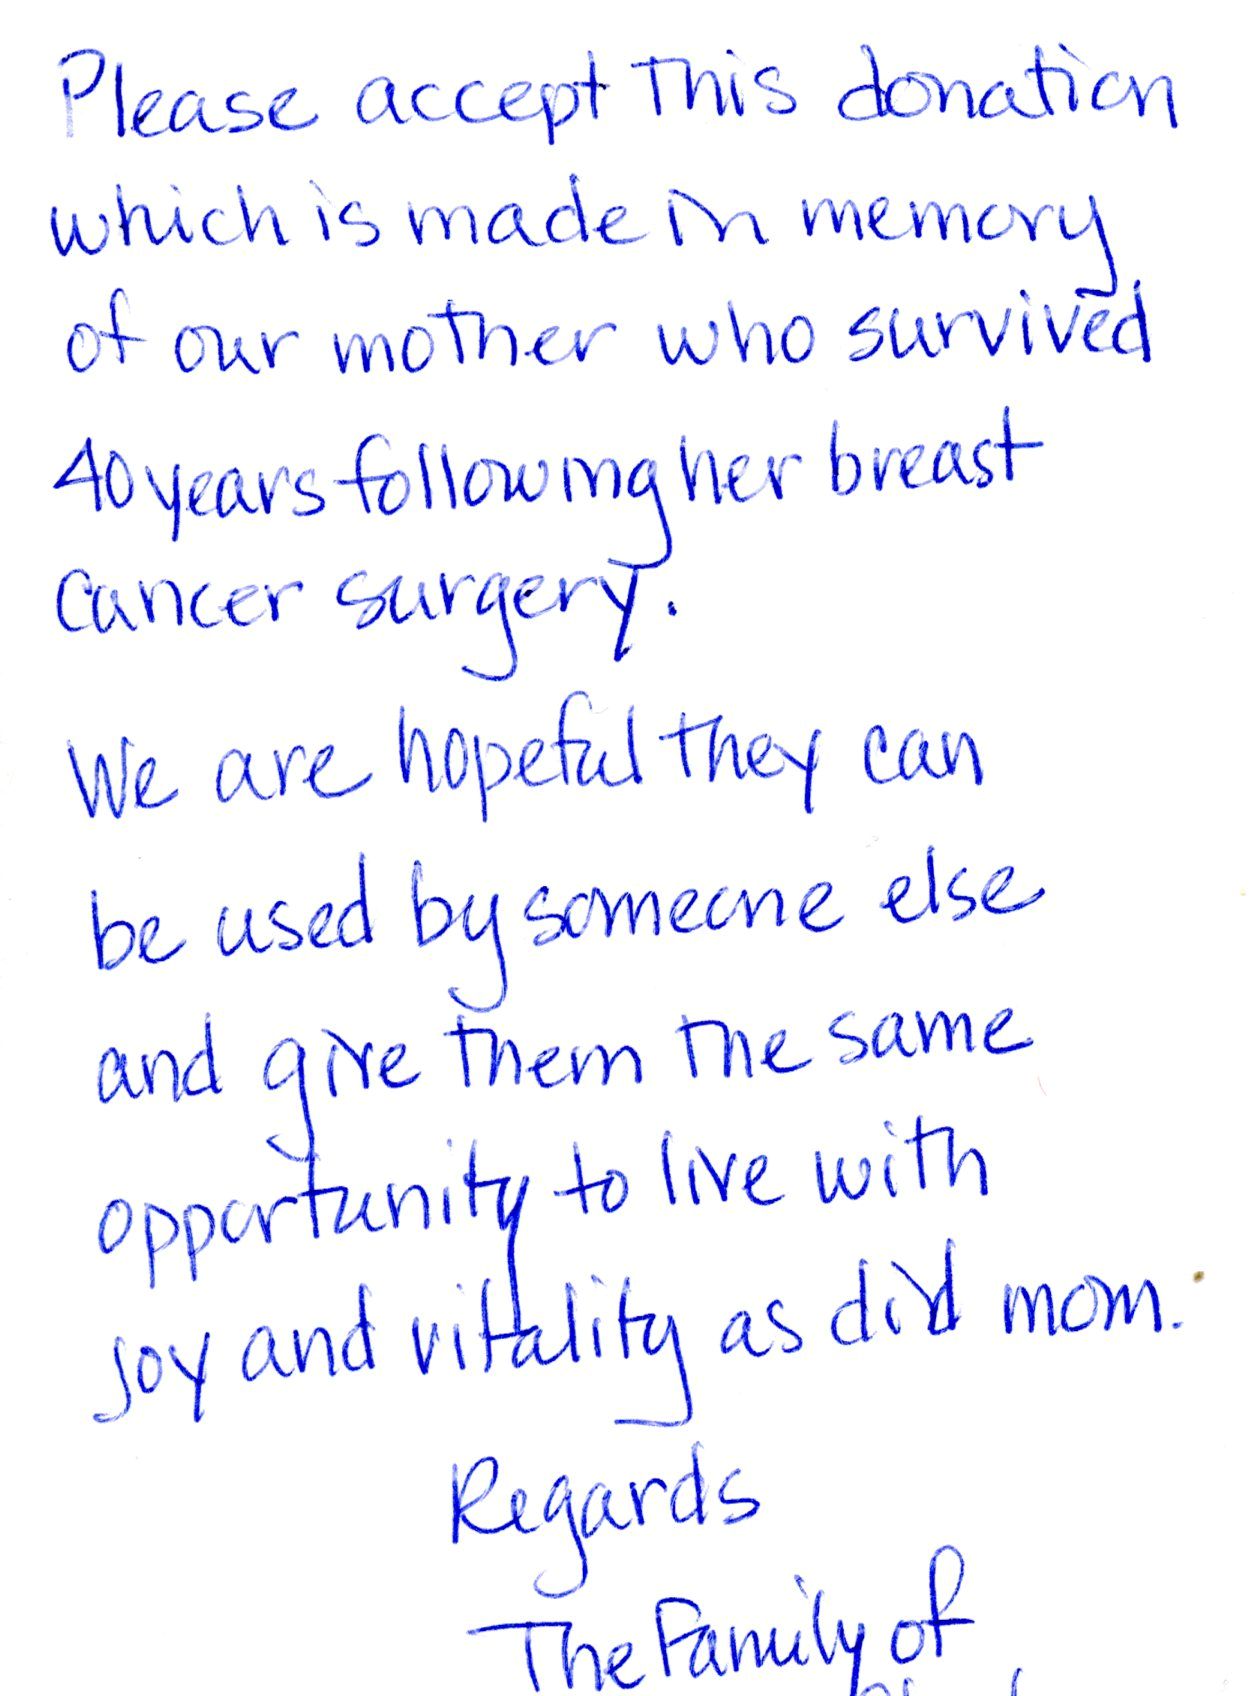 Please accept this donation
which is made in memory
of our mother who survived
40 years following her breast
cancer surgery.
We are hopeful they can
be used by someone else
and give them the same
opportunity to live with
joy and vitality as did mom.
Regards
The Family of